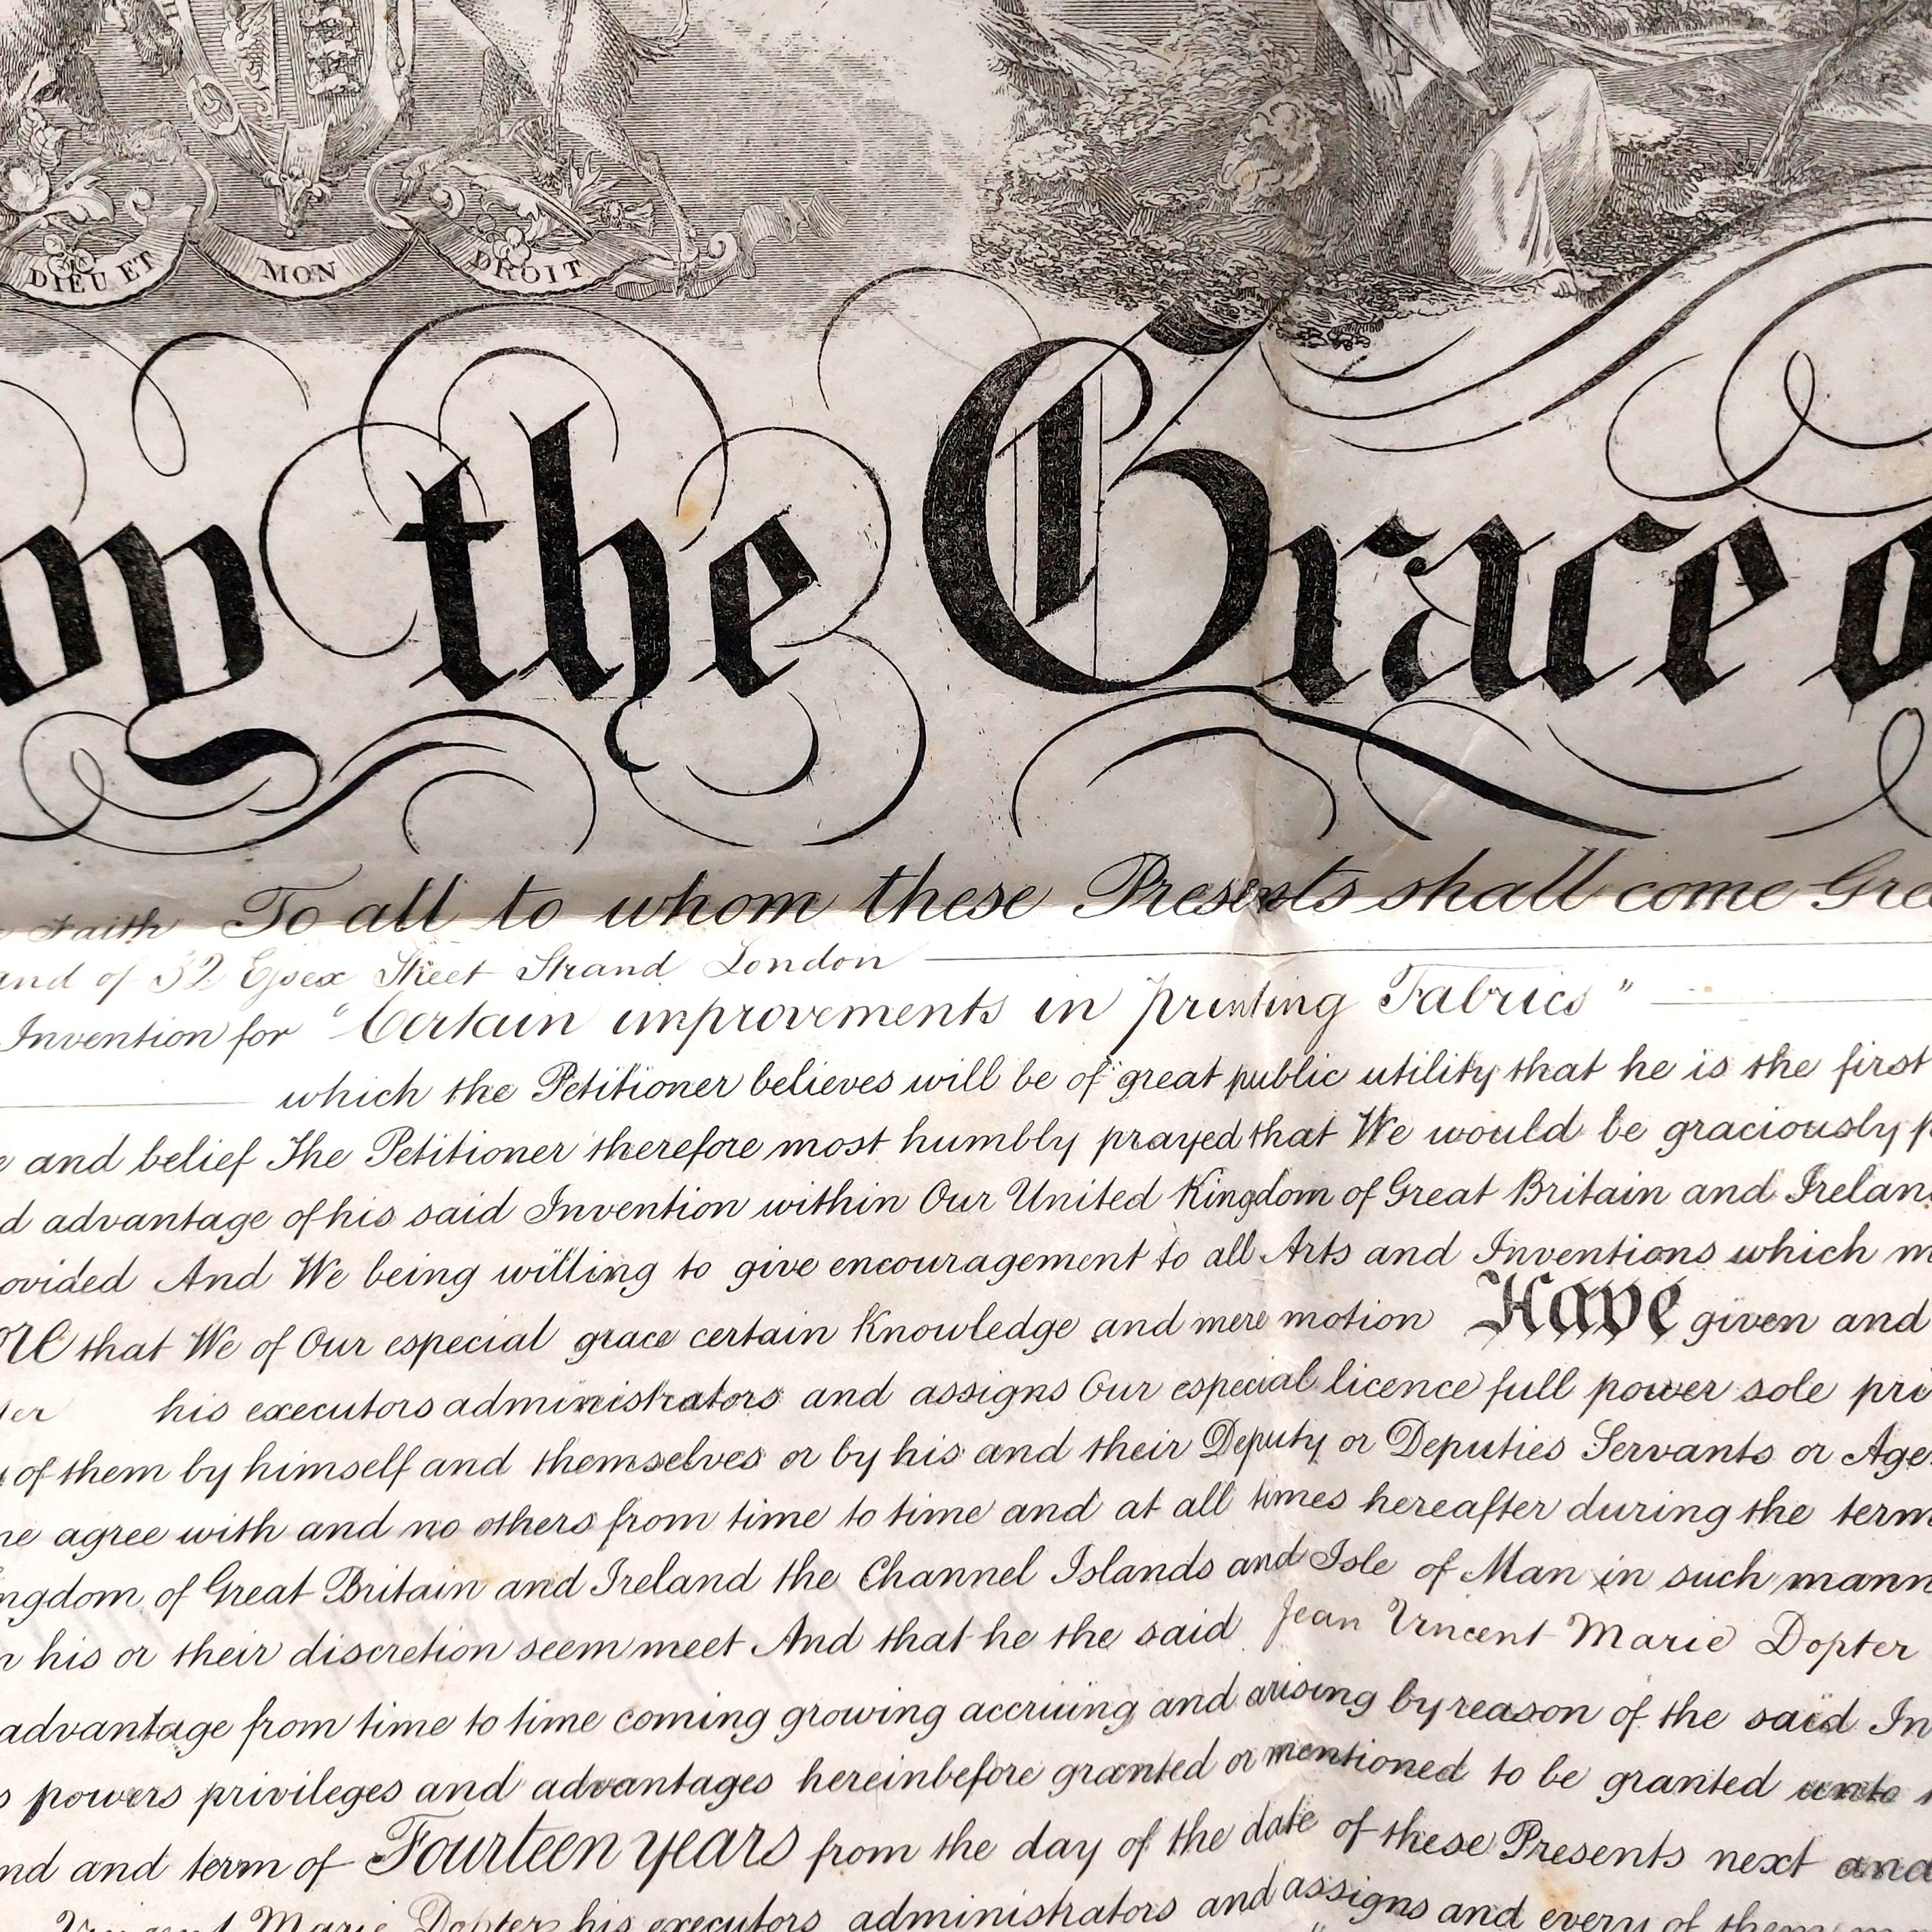 DIEU ET MON DROIT
by the Grace o
Faith To all to whom these Presents shall come Gree
and of 32 Essex Street Strand London
Invention for "Certain improvements in printing Fabrics"
which the Petitioner believes will be of great public utility that he is the first
e and belief The Petitioner therefore most humbly prayed that We would be graciously p
d advantage of his said Invention within Our United Kingdom of Great Britain and Irelan
ovided And We being willing to give encouragement to all Arts and Inventions which m
ore that We of Our especial grace certain Knowledge and mere motion Have given and
ter his executors administrators and assigns Our especial licence full power sole pri
of them by himself and themselves or by his and their Deputy or Deputies Servants or Age
me agree with and no others from time to time and at all times hereafter during the term
ingdom of Great Britain and Ireland the Channel Islands and Isle of Man in such mann
n his or their discretion seem meet And that he the said Jean Vincent Marie Dopter
advantage from time to time coming growing accruing and arising by reason of the said In
s powers privileges and advantages hereinbefore granted or mentioned to be granted unto
nd and term of Fourteen years from the day of the date of these Presents next and
Vincent Marie Dopter his executors administrators and assigns and every of them